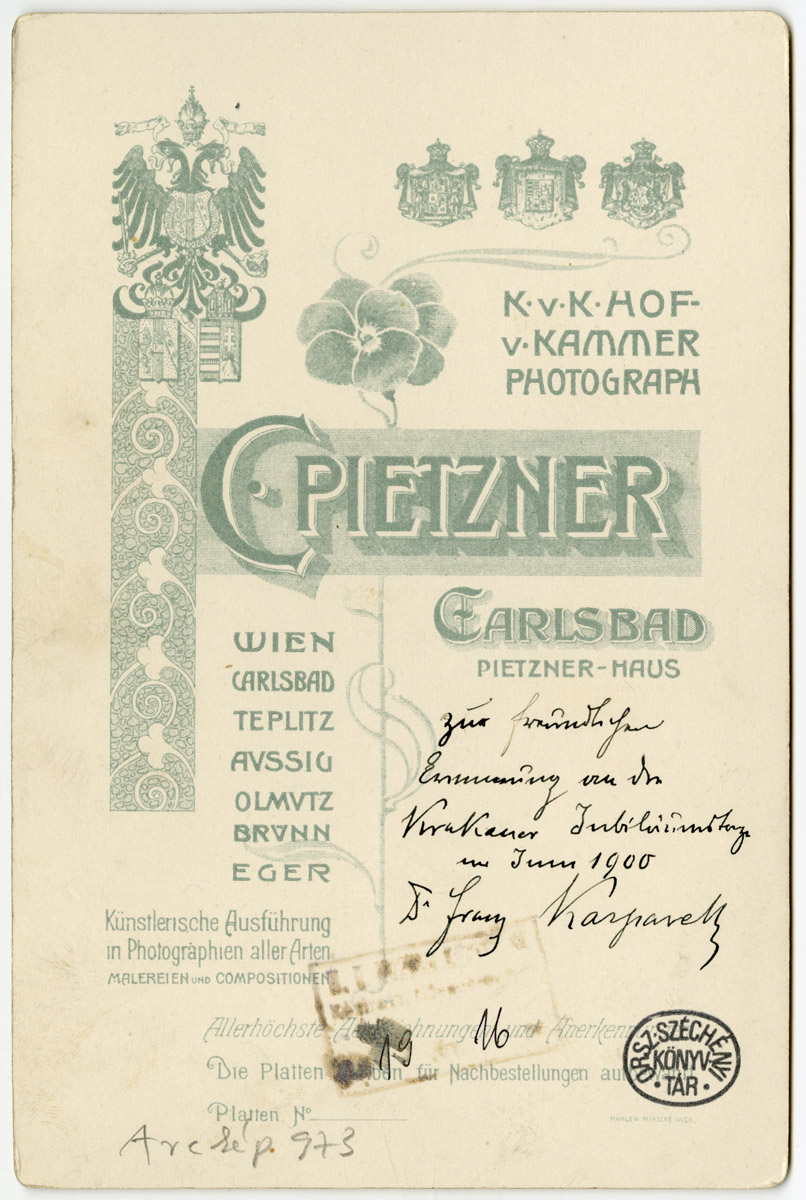 K·v·K·HOF-
v·KAMMER
PHOTOGRAPH
C·PIETZNER
CARLSBAD
PIETZNER-HAUS
WIEN
CARLSBAD
TEPLITZ
AVSSIG
OLMVTZ
BRVNN
EGER
zur freundlichen
Erinnerung an die
Krakauer Jubiläumstage
im Juni 1900
Dr Franz
Künstlerische Ausführung
in Photographien aller Arten.
MALEREIEN UND COMPOSITIONEN.
Allerhöchste und
19 16
Die Platten für Nachbestellungen
Platten No
ORSZ·SZÉCHÉNYI
KÖNYV-
TÁR
Arckép. 973